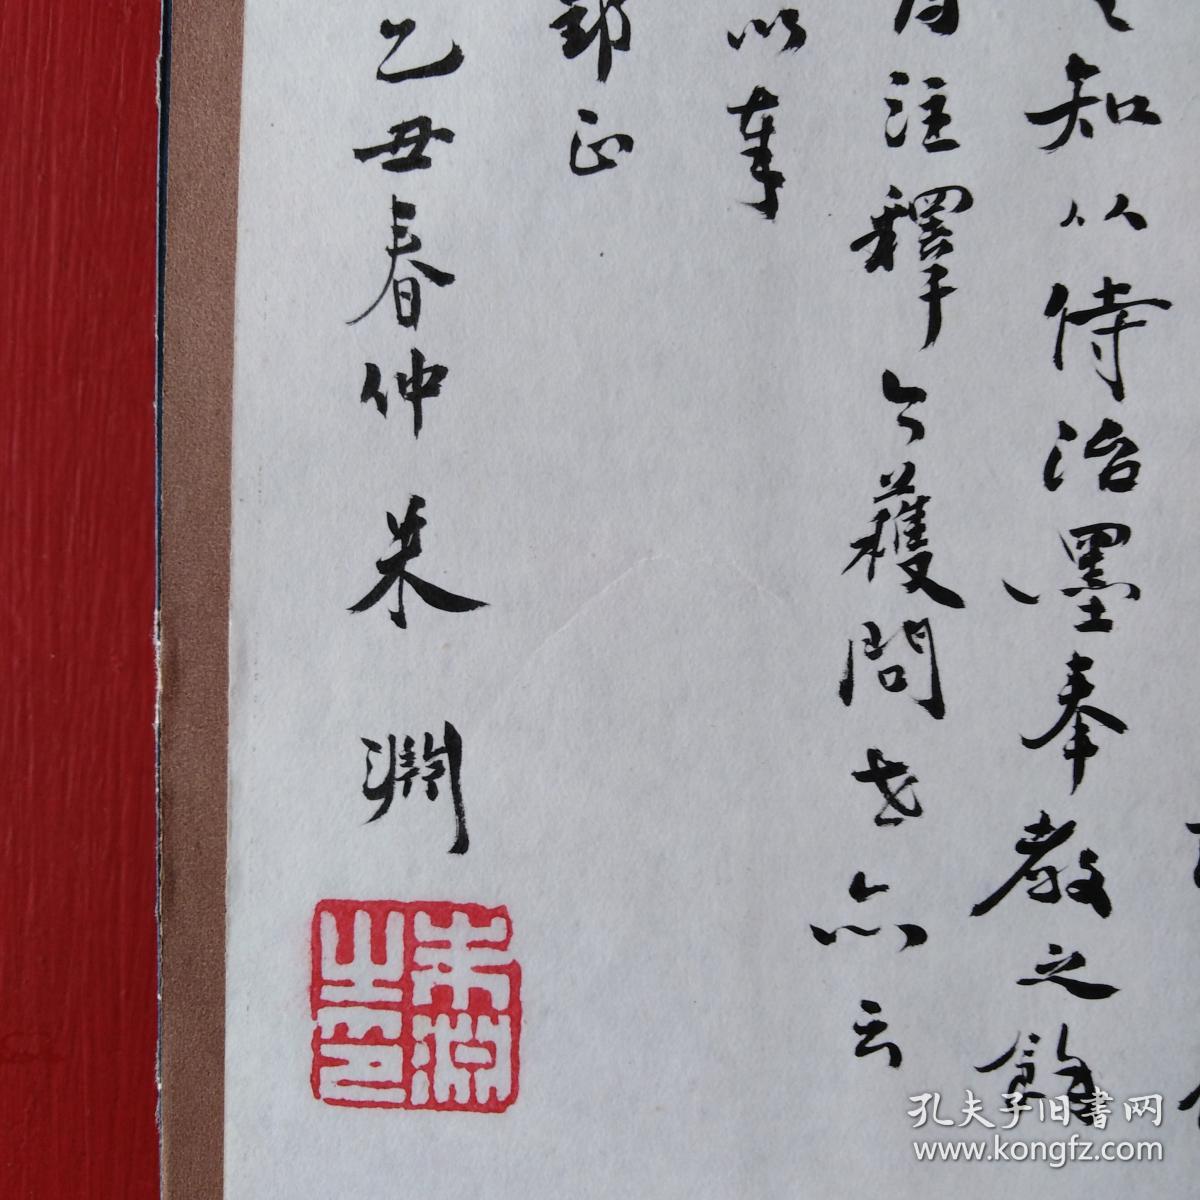 知以侍治墨奉教之餘
注釋今獲問世亦云
以奉
郢正
乙丑春仲朱淵
朱淵之印
孔夫子旧书网
www.kongfz.com